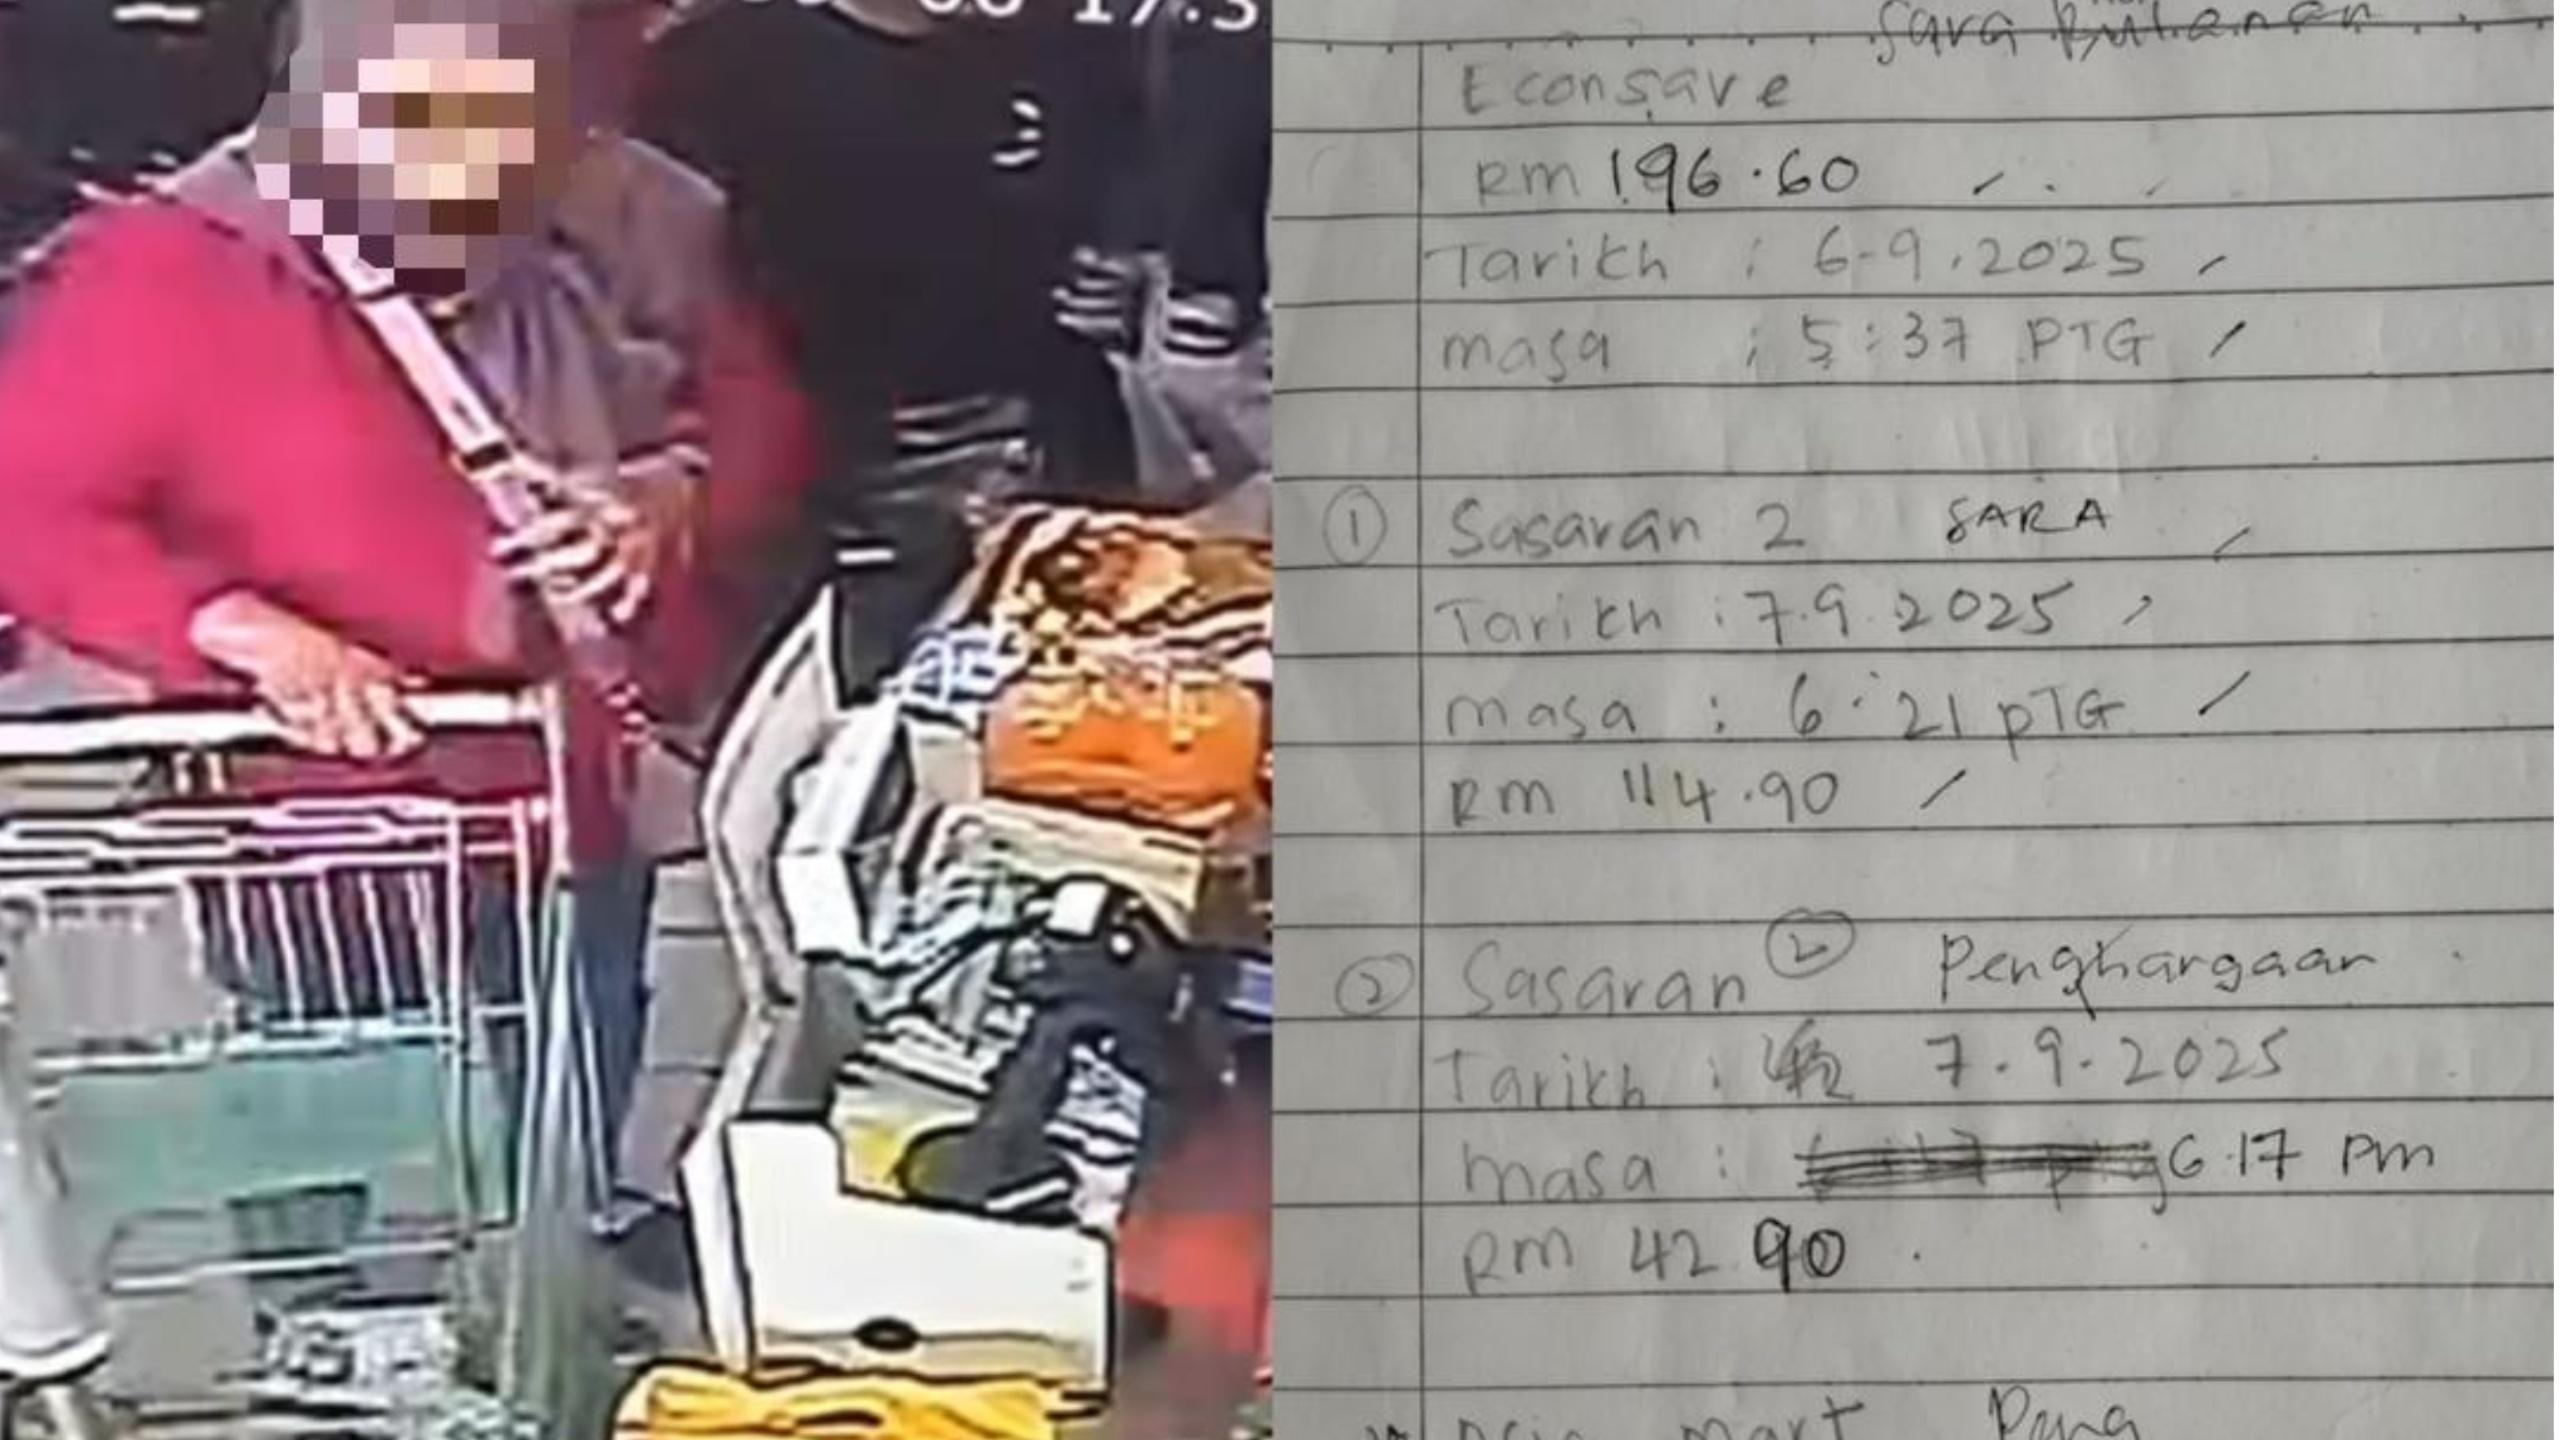 17:3
Sara Bulanan
Econsave
RM 196.60
Tarikh : 6-9.2025
masa : 5:37 PTG
① Sasaran 2 SARA
Tarikh : 7.9.2025
masa : 6:21 PTG
RM 114.90
② Sasaran ② Penghargaan
Tarikh : 7.9.2025
masa : 6.17 Pm
RM 42 90
mart